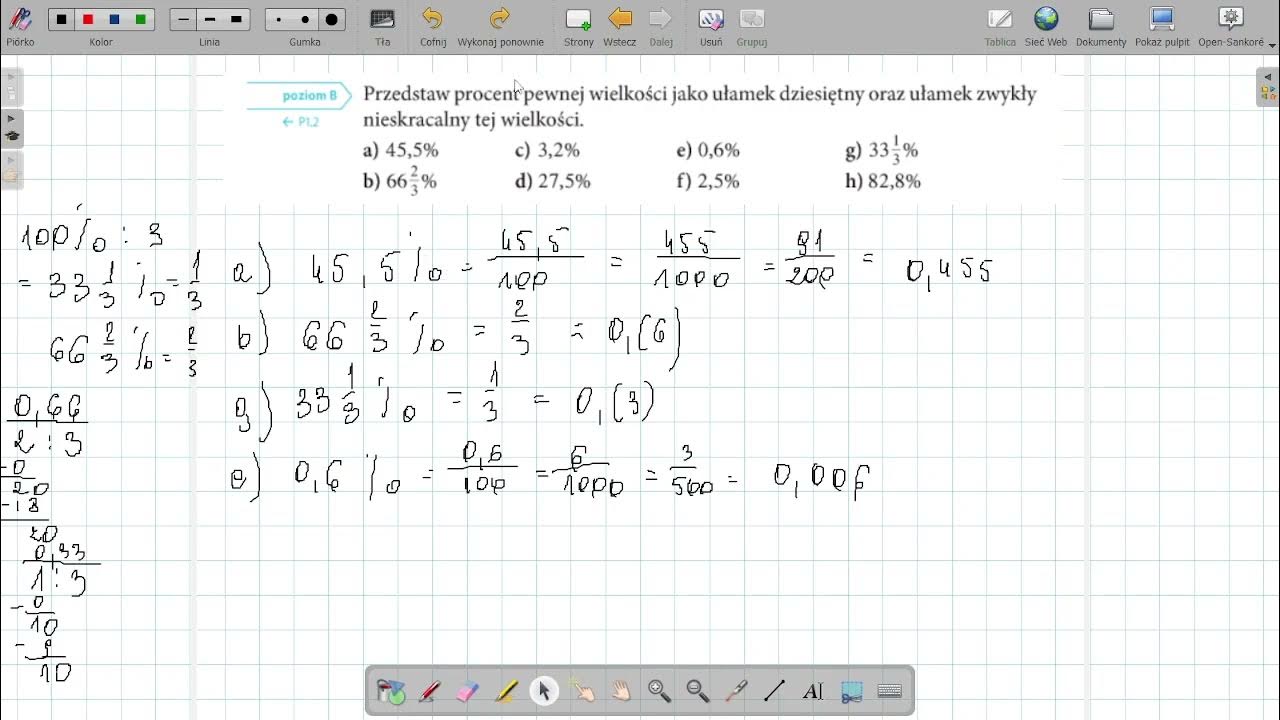 Piórko Kolor Linia Gumka Tła Cofnij Wykonaj ponownie Strony Wstecz Dalej Usuń Grupuj Tablica Sieć Web Dokumenty Pokaż pulpit Open-Sankoré
poziom B
← P1.2
Przedstaw procent pewnej wielkości jako ułamek dziesiętny oraz ułamek zwykły
nieskracalny tej wielkości.
a) 45,5% c) 3,2% e) 0,6% g) 33 1/3%
b) 66 2/3% d) 27,5% f) 2,5% h) 82,8%
100% : 3
= 33 1/3 % = 1/3
66 2/3 % = 2/3
0,66
2 : 3
-0
20
-18
20
0,33
1 : 3
-0
10
-9
10
a) 45,5% = 45,5/100 = 455/1000 = 91/200 = 0,455
b) 66 2/3 % = 2/3 = 0,(6)
g) 33 1/3 % = 1/3 = 0,(3)
e) 0,6% = 0,6/100 = 6/1000 = 3/500 = 0,006
AI